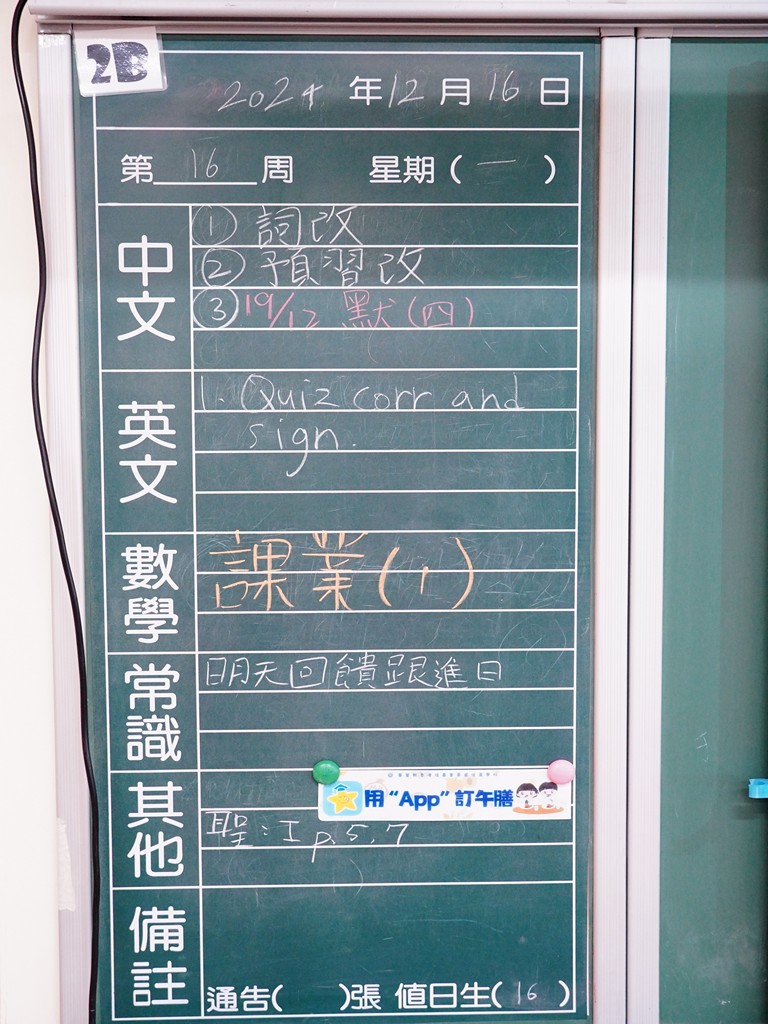 2B
2024 年 12 月 16 日
第 16 周 星期 ( 一 )
中文
① 詞改
② 預習改
③ 19/12 默(四)
英文
1. Quiz corr and
sign.
數學
課業(1)
常識
明天回饋跟進日
其他
用 “App” 訂午膳
聖：I p.5,7
備註
通告( )張 值日生( 16 )